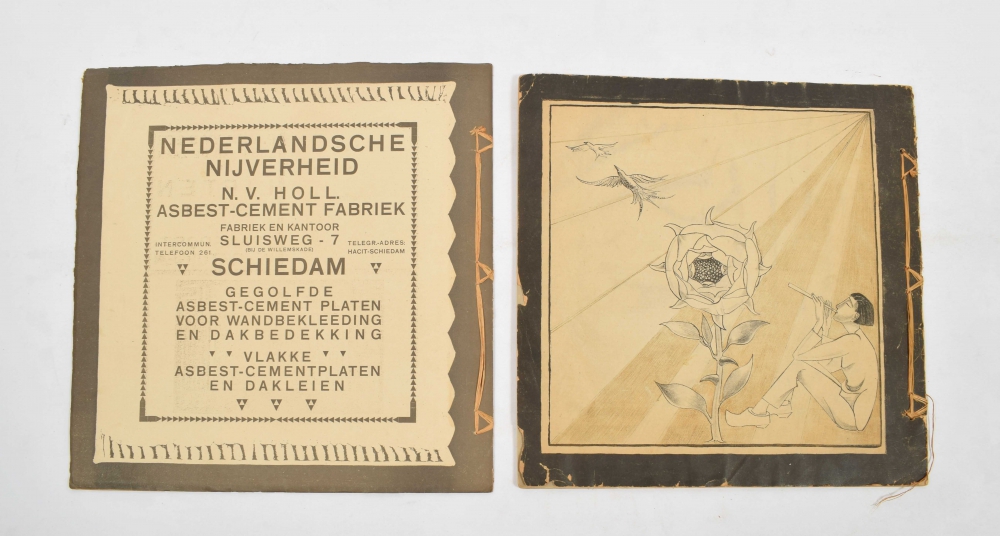 NEDERLANDSCHE
NIJVERHEID
N.V. HOLL.
ASBEST-CEMENT FABRIEK
FABRIEK EN KANTOOR
INTERCOMMUN. SLUISWEG - 7 TELEGR.-ADRES:
TELEFOON 261 (BIJ DE WILLEMSKADE) HACIT-SCHIEDAM
SCHIEDAM
GEGOLFDE
ASBEST-CEMENT PLATEN
VOOR WANDBEKLEEDING
EN DAKBEDEKKING
VLAKKE
ASBEST-CEMENTPLATEN
EN DAKLEIEN